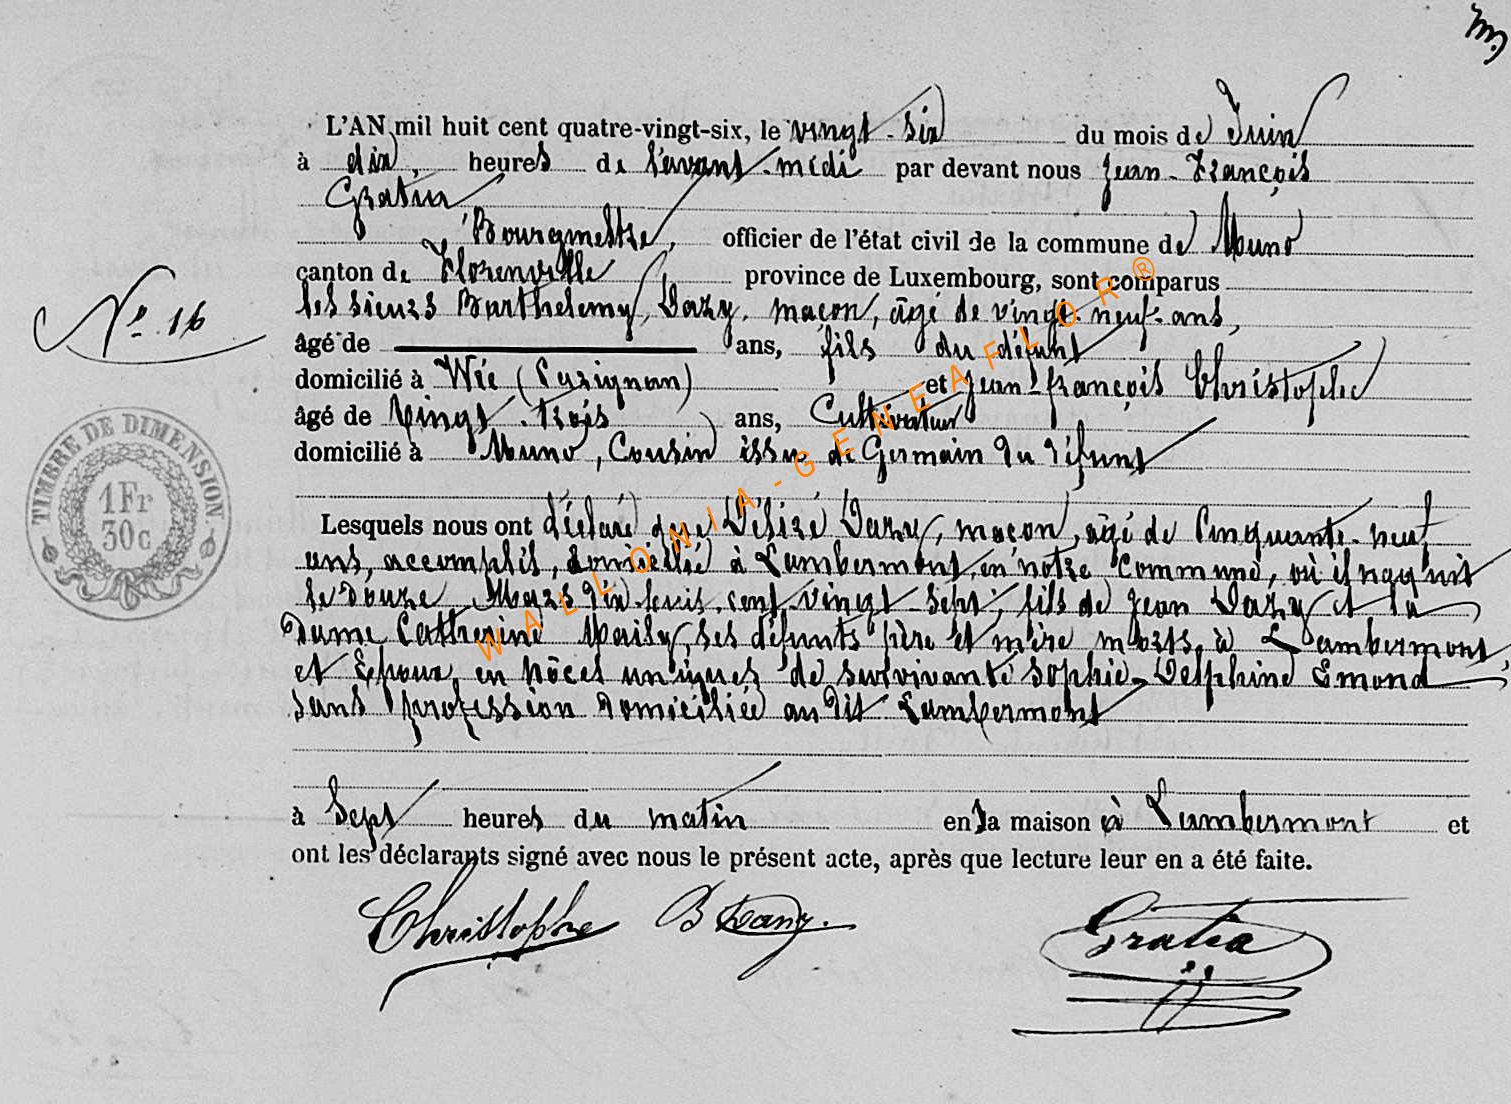 m.
L'AN mil huit cent quatre-vingt-six, le vingt-six du mois de Juin
à dix, heures de l'avant-midi par devant nous Jean-François
Gratia
Bourgmestre, officier de l'état civil de la commune de Muno
canton de Florenville province de Luxembourg, sont comparus
les sieurs Barthelemy Dazy, maçon, âgé de vingt-neuf-ans,
N° 16
âgé de ans, fils du défunt
domicilié à Wé (Carignan) et Jean-françois Christophe
âgé de Vingt-trois ans, Cultivateur
domicilié à Muno, Cousin issu de Germain du défunt
TIMBRE DE DIMENSION
1 Fr
30 c
Lesquels nous ont déclaré que Désiré Dazy, maçon, âgé de Cinquante-neuf
ans, accomplis, domicilié à Lambermont, en notre Commune, où il naquit
le douze Mars dix-huit-cent-vingt-sept, fils de Jean Dazy et la
Dame Catherine Mailly, ses défunts père et mère morts à Lambermont,
et Epoux en nôces uniques de survivante Sophie-Delphine Emond
sans profession domiciliée au dit Lambermont
à Sept heures du matin en la maison à Lambermont et
ont les déclarants signé avec nous le présent acte, après que lecture leur en a été faite.
Christophe B Dazy. Gratia
WALLONIA-GENEAFLOR®